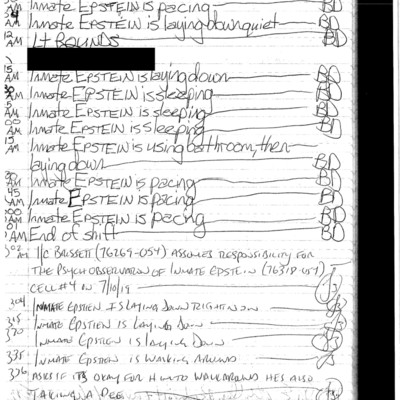 AM Inmate EPSTEIN is pacing BD
4 AM Inmate EPSTEIN is laying down quiet BD
12 AM Lt ROUNDS BD
15 AM Inmate EPSTEIN is laying down BD
30 AM Inmate EPSTEIN is sleeping BD
AM Inmate EPSTEIN is sleeping BD
00 AM Inmate EPSTEIN is sleeping BD
15 AM Inmate EPSTEIN is using bathroom, then
laying down BD
30 AM Inmate EPSTEIN is pacing BD
45 AM Inmate EPSTEIN is pacing BD
00 AM Inmate EPSTEIN is pacing BD
01 AM End of shift BD
AM I/C (76269-054) ASSUMES RESPONSIBILITY FOR
THE PSYCH OBSERVATION OF INMATE EPSTEIN (76318-054)
CELL #4 IN 7/10/19
304 INMATE EPSTIEN IS LAYING DOWN RIGHT NOW
315 INMATE EPSTEIN IS LAYING DOWN
INMATE EPSTIEN IS LAYING DOWN
335 INMATE EPSTEIN IS WALKING AROUND
336 ASKS IF IT'S OKAY FOR HIM TO WALK AROUND HE'S ALSO
TAKING A PEE